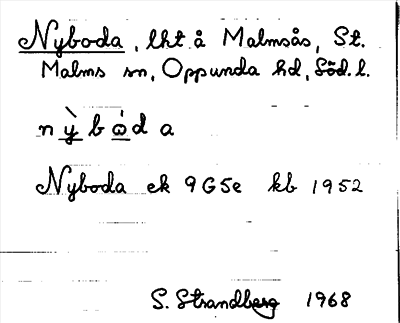 Nyboda, lht å Malmsås, St.
Malms sn, Oppunda hd, Söd. l.
n ỳ b ὼ d a
Nyboda ek 9G5e kb 1952
S. Strandberg 1968